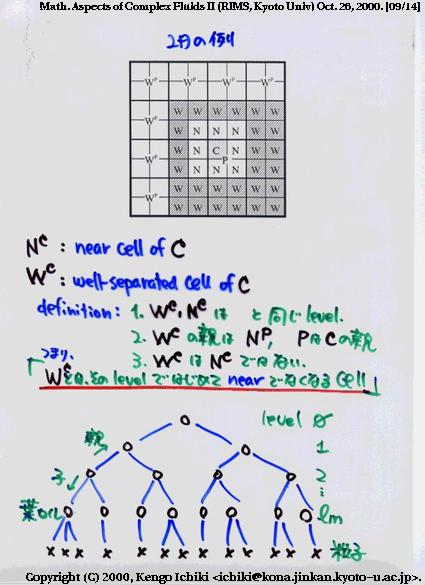 Math. Aspects of Complex Fluids II (RIMS, Kyoto Univ) Oct. 26, 2000. [09/14]
2Dの例
W^P W^P W^P W^P
W^P W W W W W W
N N N W W
W^P W W
W N C N W W
P
W^P W N N N W W
W W W W W W
W^P W W W W W W
N^C : near cell of C
W^C : well-separated cell of C
definition: 1. W^C, N^C は と同じ level.
2. W^C の親は N^P, PはCの親
3. W^C は N^C でない.
つまり,
「W^Cは、その level ではじめて near でなくなる cell」
level 0
親
1
子
2
葉cell
lm
x x x x x x x x x x x x 粒子
Copyright (C) 2000, Kengo Ichiki <ichiki@kona.jinkan.kyoto-u.ac.jp>.